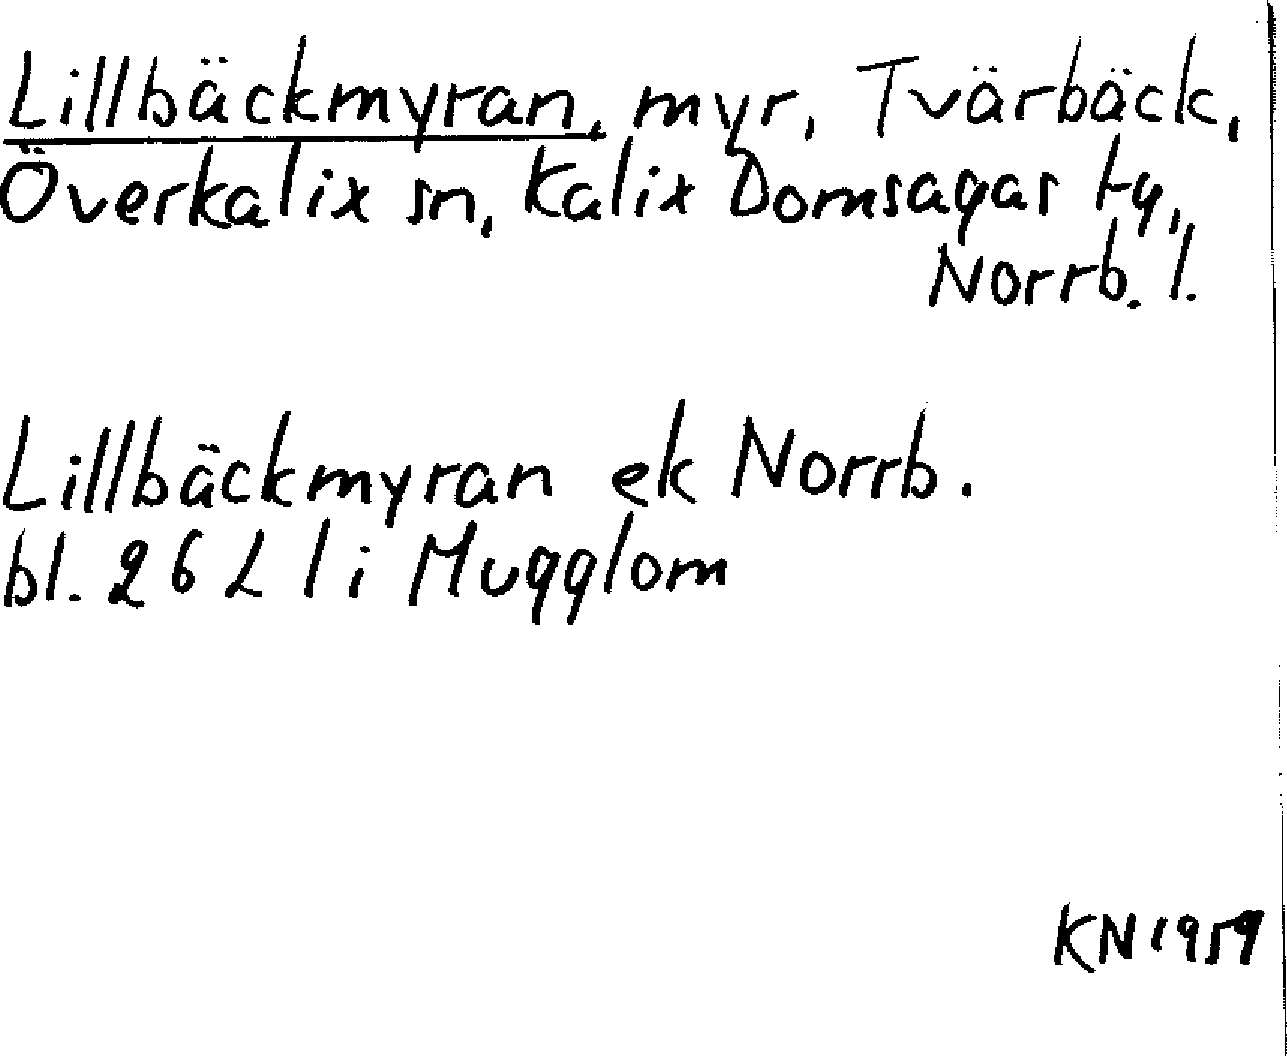 Lillbäckmyran, myr, Tvärbäck,
Överkalix sn, Kalix Domsagas tg,
Norrb. l.
Lillbäckmyran ek Norrb.
bl. 26 L l i Mugglom
KN 1959